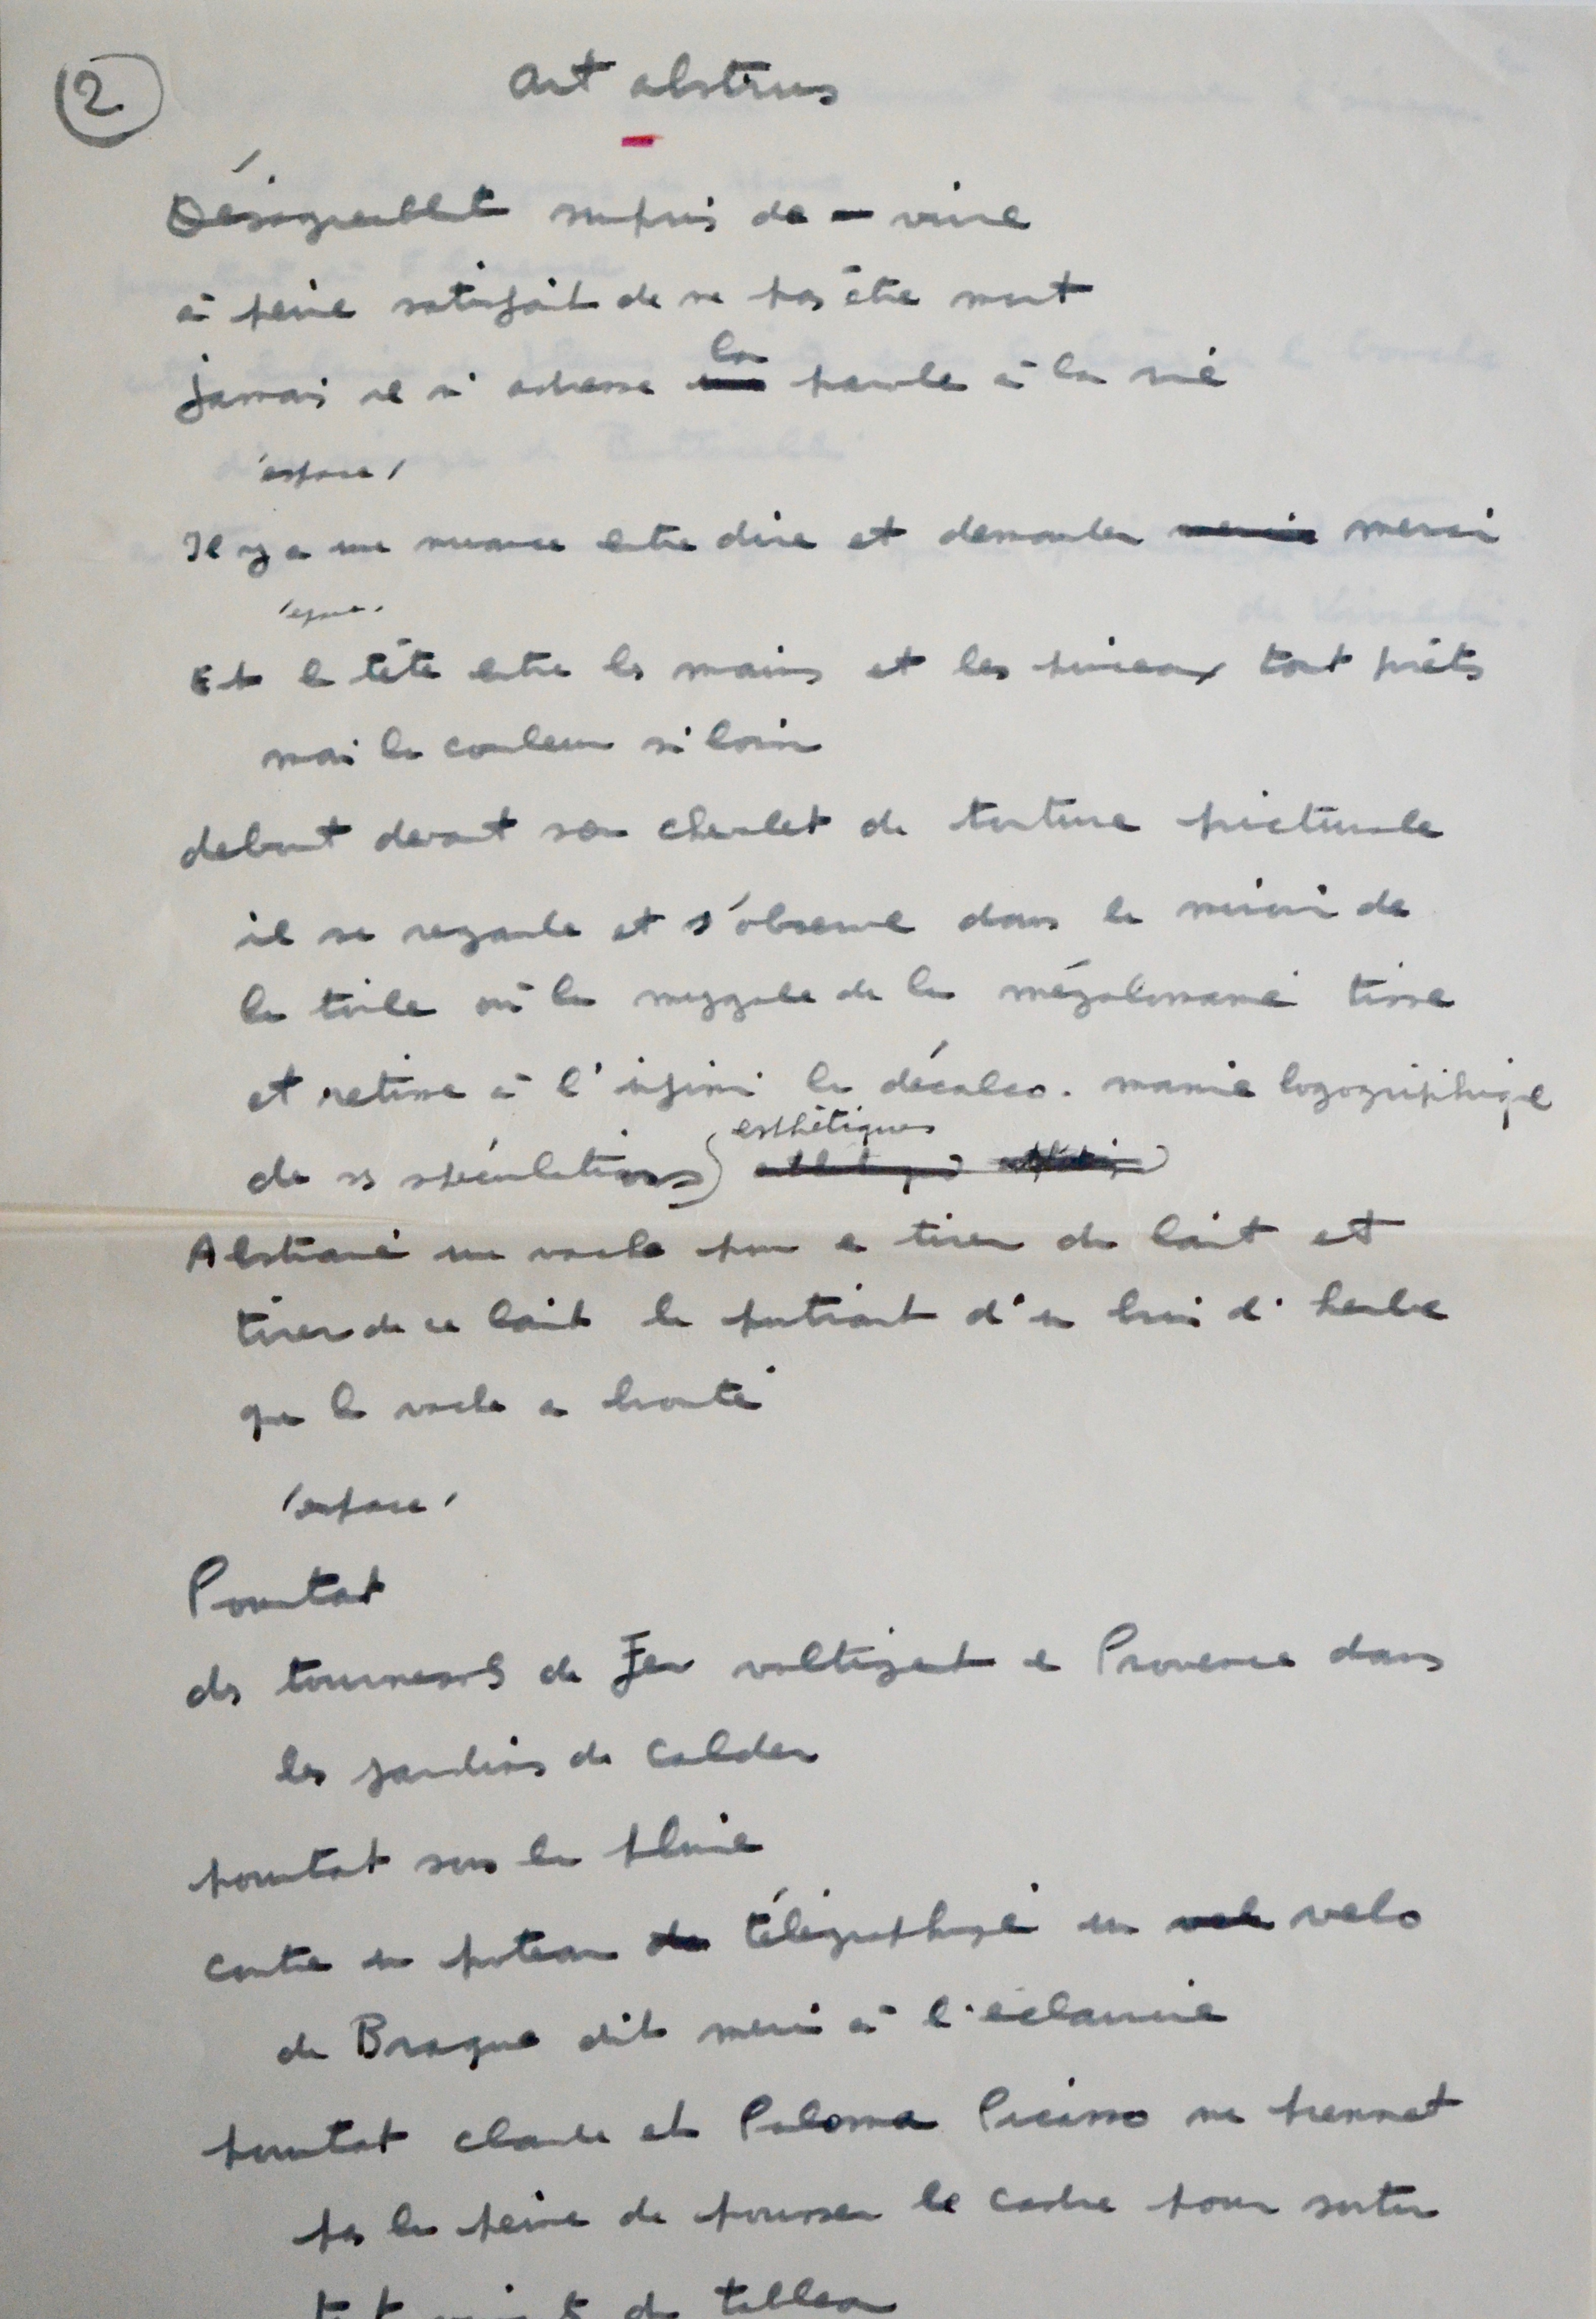 2
Art abstrus
Désagréablement surpris de vivre
à peine satisfait de ne pas être mort
jamais il n'adresse la parole à la vie
/espace/
Il y a une nuance entre dire et demander merci
/espace/
Et la tête entre les mains et les pinceaux tout prêts
mais la couleur si loin
debout devant son chevalet de torture picturale
il se regarde et s'observe dans le miroir de
la toile où la mygale de la mégalomanie tisse
et retisse à l'infini la décalco.manie logogriphique
de ses spéculations esthétiques
Abstraire une vache pour en tirer du lait et
tirer de ce lait le portrait d'un brin d'herbe
que la vache a brouté
/espace/
Pourtant
des tournesols de fer voltigent en Provence dans
les jardins de Calder
pourtant sous la pluie
contre un poteau télégraphique un velo
de Braque dit merci à l'éclaircie
pourtant Claude et Paloma Picasso ne prennent
pas la peine de pousser le cadre pour sortir
tout vivants du tableau